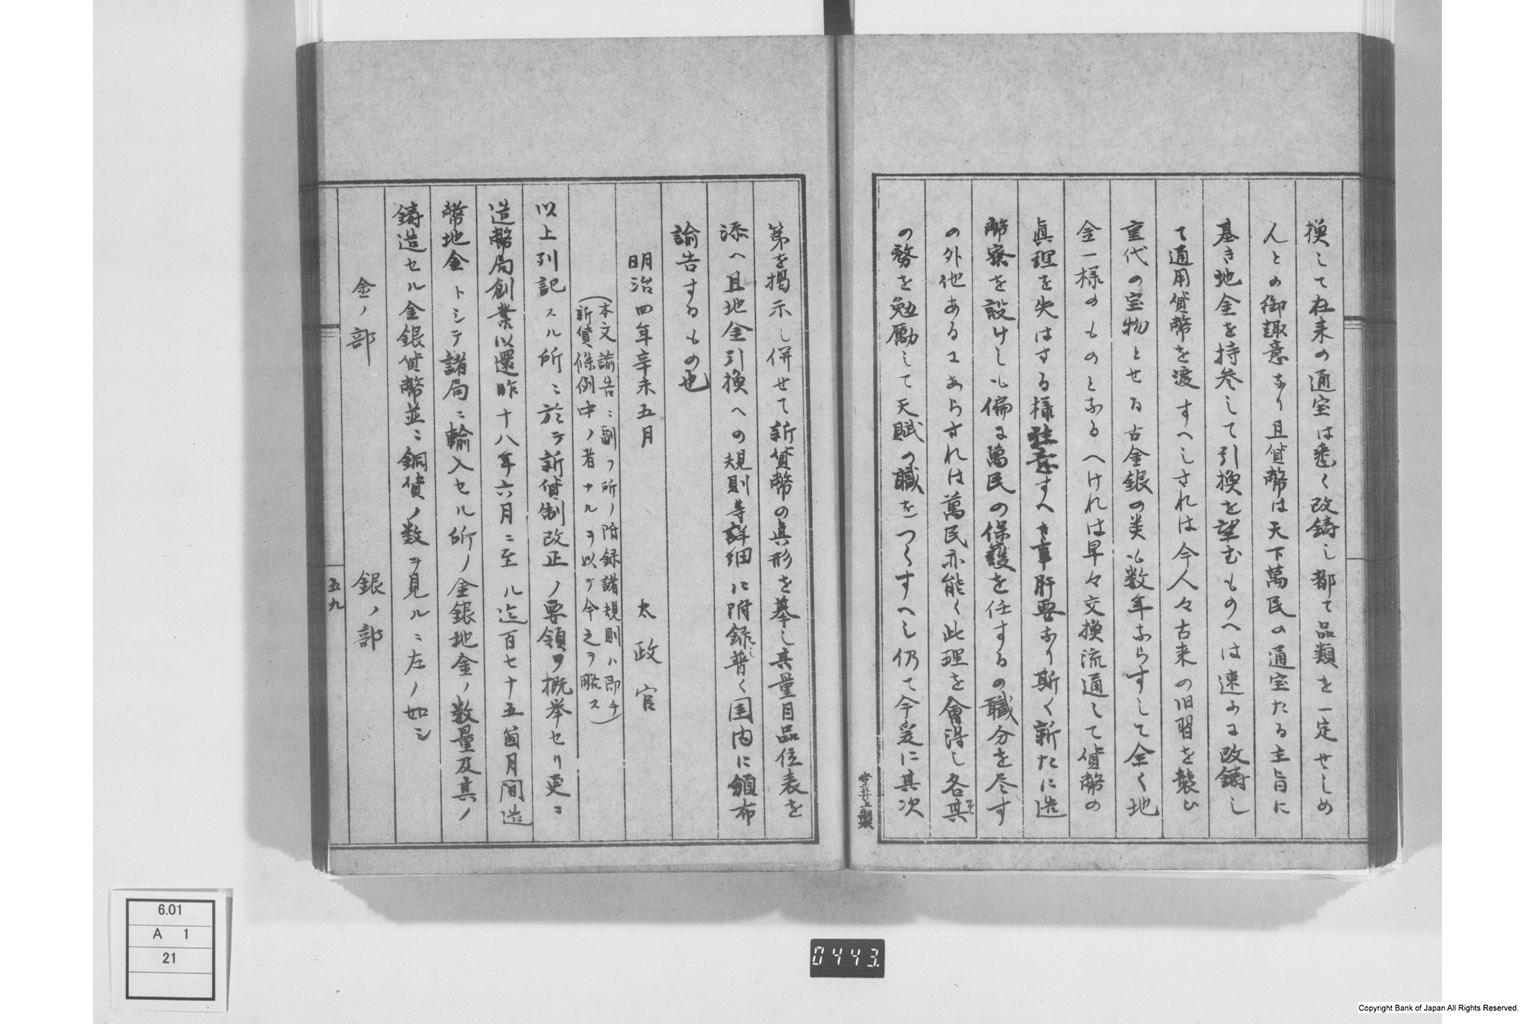 換して在来の通宝は悉く改鋳し都て品類を一定せしめ
んとの御諏意なり且貨幣は天下萬民の通宝たる主旨に
基き地金を持参して引換を望むものへは速かに改鋳し
て通用貨幣を渡すへしされは今人々古来の旧習を襲ひ
重代の宝物とせる古金銀の类も数年ならすして全く地
金一様のものとなるへけれは早々交換流通して貨幣の
眞理を失はさる様注意すへき事肝要なり斯く新たに造
幣寮を設けしも偏に萬民の保護を任するの職分を尽す
の外他あるにあらされは萬民亦能く此理を會得し各其
の務を勉励して天賦の職をつくすへし仍て今爰に其次
第を掲示し併せて新貨幣の真形を摹し其量目品位表を
添へ且地金引換への規則等詳細に附録し普く国内に頒布
諭告するもの也
明治四年辛未五月 太政官
(本文諭告ニ副フ所ノ附録諸規則ハ即チ
新貨條例中ノ者ナルヲ以テ今之ヲ略ス)
以上列記スル所ニ於テ新貨制改正ノ要領ヲ概挙セリ更ニ
造幣局創業以還昨十八年六月ニ至ル迄百七十五箇月間造
幣地金トシテ諸局ニ輸入セル所ノ金銀地金ノ数量及其ノ
鋳造セル金銀貨幣並ニ銅貨ノ数ヲ見ルニ左ノ如シ
金ノ部 銀ノ部
五九
6.01
A 1
21
0443
Copyright Bank of Japan All Rights Reserved.